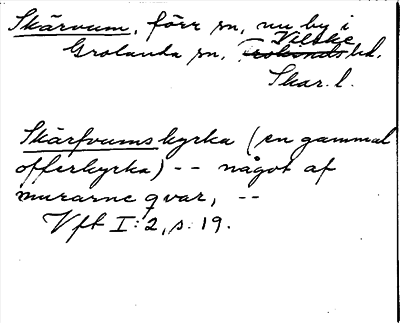 Skärvum, förr sn, nu by i
Grolanda sn, Vilske hd.
Skar. l.
Skärfvums kyrka (en gammal
offerkyrka) -- något af
murarne qvar, --
Vft I:2, s. 19.